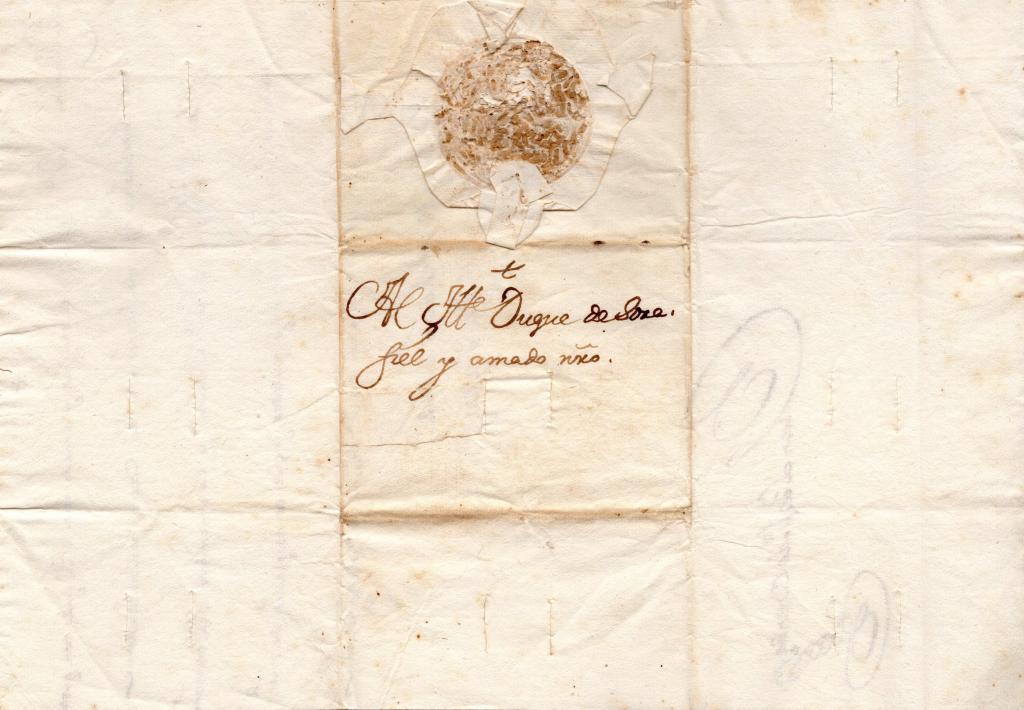 †
Al Ille Duque de Sora.
fiel y amado nřo.